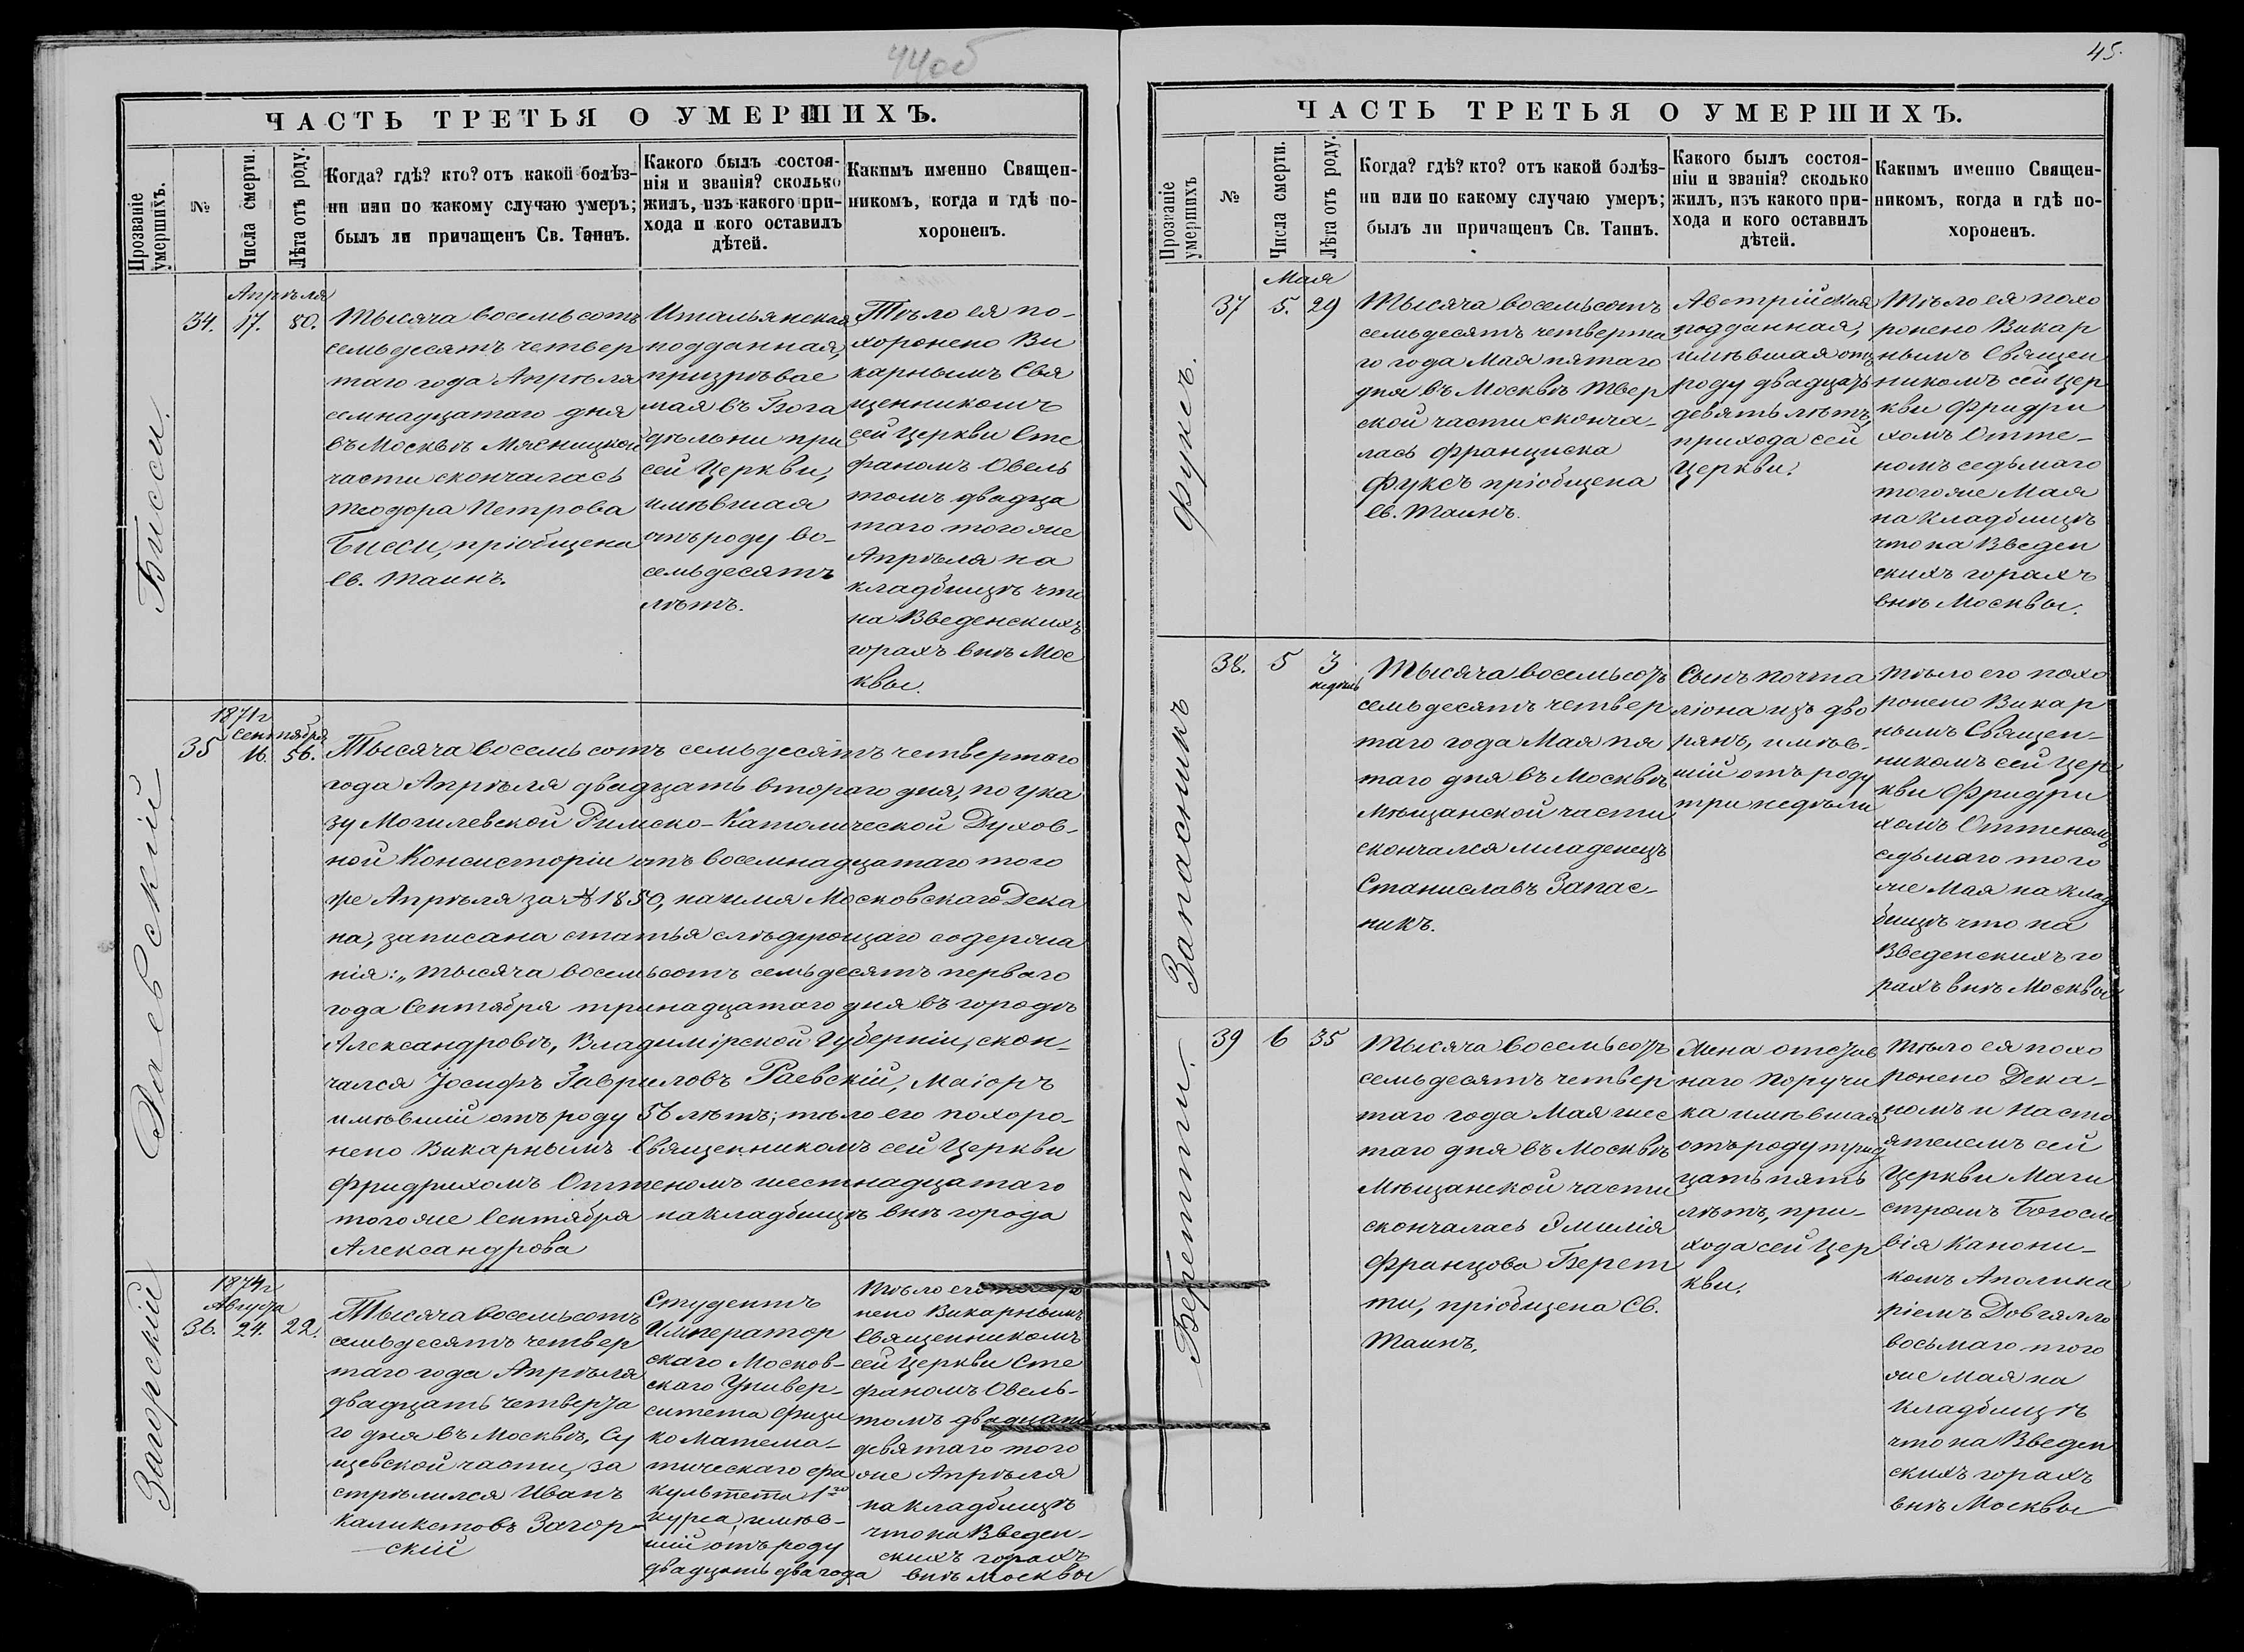 44об
ЧАСТЬ ТРЕТЬЯ О УМЕРШИХЪ.
Прозваніе
умершихъ.
№
Числа смерти.
Лѣта отъ роду.
Когда? гдѣ? кто? отъ какой болѣз-
ни или по какому случаю умеръ;
былъ ли причащенъ Св. Таинъ.
Какого былъ состоя-
нія и званія? сколько
жилъ, изъ какого при-
хода и кого оставилъ
дѣтей.
Какимъ именно Священ-
никомъ, когда и гдѣ по-
хороненъ.
Бисси.
34.
Апрѣля
17.
80.
Тысяча восемьсотъ
семьдесятъ четвер
таго года Апрѣля
семнадцатаго дня
въ Москвѣ Мясницкой
части скончалась
Теодора Петрова
Бисси, пріобщена
Св. Таинъ.
Итальянская
подданная,
призрѣвае
мая въ Бога
дѣльни при
сей Церкви,
имѣвшая
отъ роду во-
семьдесятъ
лѣтъ.
Тѣло ея по-
хоронено Ви
карнымъ Свя
щенникомъ
сей Церкви Сте
фаномъ Овель
томъ двадца
таго того же
Апрѣля на
кладбищѣ что
на Введенскихъ
горахъ внѣ Мос
квы.
Раевскій
35
1871г
Сентября
16.
56.
Тысяча восемь сотъ семьдесятъ четвертаго
года Апрѣля двадцать втораго дня, по ука
зу Могилевской Римско-Католической Духов-
ной Консисторіи отъ восемнадцатаго того
же Апрѣля за № 1850, на имя Московскаго Дека
на, записана статья слѣдующаго содержа
нія: „тысяча восемьсотъ семьдесятъ перваго
года Сентября тринадцатаго дня въ городѣ
Александровѣ, Владимірской Губерніи, скон-
чался Іосифъ Гавриловъ Раевскій, Маіоръ
имѣвшій отъ роду 56 лѣтъ; тѣло его похоро-
нено Викарнымъ Священникомъ сей Церкви
Фридрихомъ Оттеномъ шестнадцатаго
того же Сентября на кладбищѣ внѣ города
Александрова
Загорскій
36.
1874г
24.
22.
Тысяча восемьсотъ
семьдесятъ четвер
таго года Апрѣля
двадцать четверта
го дня въ Москвѣ, Су
щевской части, за
стрѣлился Иванъ
Каликстовъ Загор-
скій
Студентъ
Император
скаго Москов-
скаго Универ-
ситета Физи
ко Матема-
тическаго фа
культета 1го
курса, имѣв-
шій отъ роду
двадцать два года
Тѣло его похоро
нено Викарнымъ
Священникомъ
сей Церкви Сте
фаномъ Овель-
томъ двадцать
девятаго того
же Апрѣля
на кладбищѣ
что на Введен-
скихъ горахъ
внѣ Москвы
45.
ЧАСТЬ ТРЕТЬЯ О УМЕРШИХЪ.
Прозваніе
умершихъ
№
Числа смерти.
Лѣта отъ роду.
Когда? гдѣ? кто? отъ какой болѣз-
ни или по какому случаю умеръ;
былъ ли причащенъ Св. Таинъ.
Какого былъ состоя-
ніи и званія? сколько
жилъ, изъ какого при-
хода и кого оставилъ
дѣтей.
Какимъ именно Священ-
никомъ, когда и гдѣ по-
хороненъ.
Фуксъ.
37
Мая
5.
29
Тысяча восемьсотъ
семьдесятъ четверта
го года Мая пятаго
дня въ Москвѣ Твер
ской части сконча-
лась Франциска
Фуксъ пріобщена
Св. Таинъ.
Австрійская
подданная,
имѣвшая отъ
роду двадцать
девять лѣтъ,
прихода сей
Церкви.
Тѣло ея похо
ронено Викар
нымъ Священ
никомъ сей Цер
кви Фридри
хомъ Отте-
номъ седьмаго
того же Мая
на кладбищѣ
что на Введен
скихъ горахъ
внѣ Москвы.
Запасникъ
38.
5
3
недѣль
Тысяча восемьсотъ
семьдесятъ четвер
таго года Мая пя
таго дня въ Москвѣ
Мѣщанской части
скончался младенецъ
Станиславъ Запас-
никъ.
Сынъ почта
ліона изъ дво
рянъ, имѣв-
шій отъ роду
три недѣли
Тѣло его похо
ронено Викар
нымъ Священ-
никомъ сей Цер
кви Фридри
хомъ Оттеномъ
седьмаго того
же Мая на клад
бищѣ что на
Введенскихъ го
рахъ внѣ Москвы
Беретти.
39
6
35
Тысяча восемьсотъ
семьдесятъ четвер
таго года Мая шес
таго дня въ Москвѣ
Мѣщанской части
скончалась Эмилія
Францова Берет
ти, пріобщена Св.
Таинъ.
Жена отстав
наго Поручи
ка имѣвшая
отъ роду трид
цать пять
лѣтъ, при-
хода сей Цер
кви.
Тѣло ея похо
ронено Дека-
номъ и Насто
ятелемъ сей
Церкви Маги
стромъ Богосло
вія Канони-
комъ Аполина
ріемъ Довгялло
восьмаго того
же Мая на
кладбищѣ
что на Введен
скихъ горахъ
внѣ Москвы